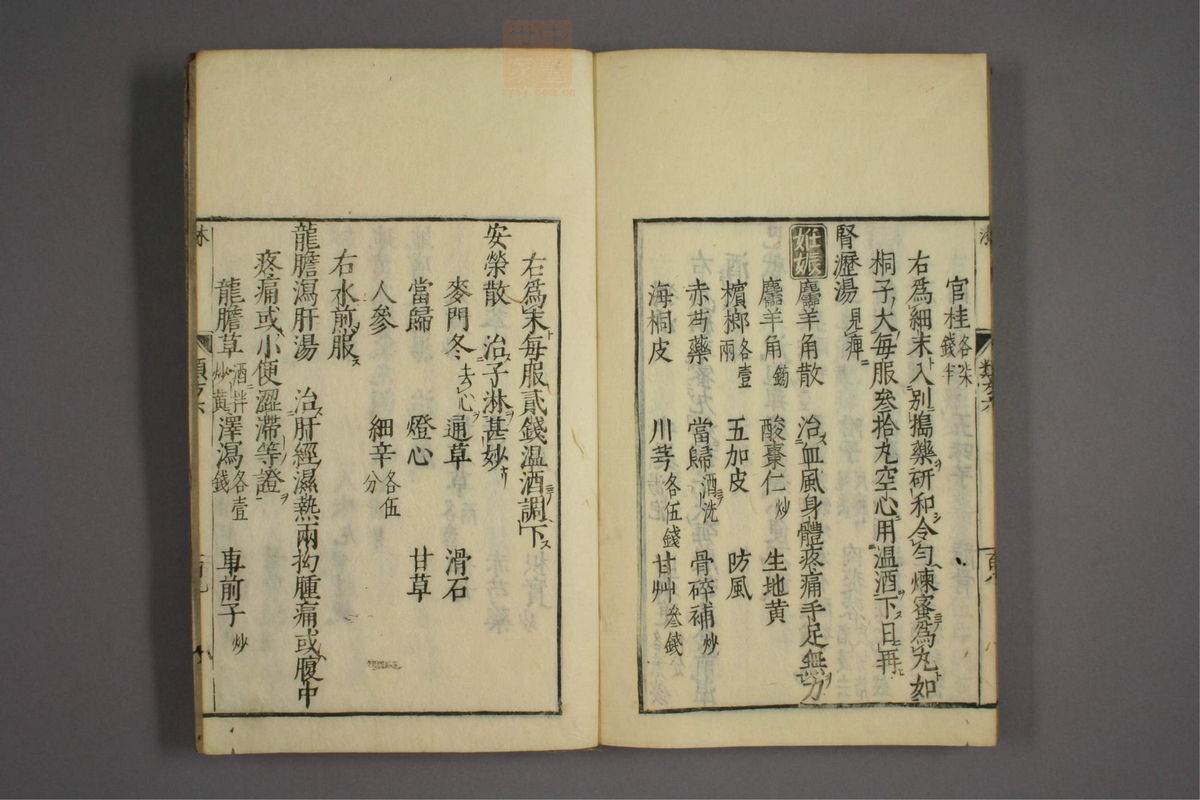 官桂各柒錢半
右爲細末入別搗藥研和令勻煉蜜為丸如
桐子大毎服叁拾丸空心用温酒下日再
腎瀝湯見痺
妊娠 麢羊角散 治血風身體疼痛手足無力
麢羊角鎊 酸棗仁炒 生地黄
檳榔各壹兩 五加皮 防風
赤芍藥 當歸酒洗 骨碎補炒
海桐皮 川芎各伍錢 甘艸叁錢
右爲末毎服貳錢温酒調下
安榮散 治子淋甚妙
麥門冬去心 通草 滑石
當歸 燈心 甘草
人參 細辛各伍分
右水煎服
龍膽瀉肝湯 治肝經濕熱兩拘腫痛或腹中
疼痛或小便澀滯等證
龍膽草酒拌炒黄 澤瀉各壹錢 車前子炒